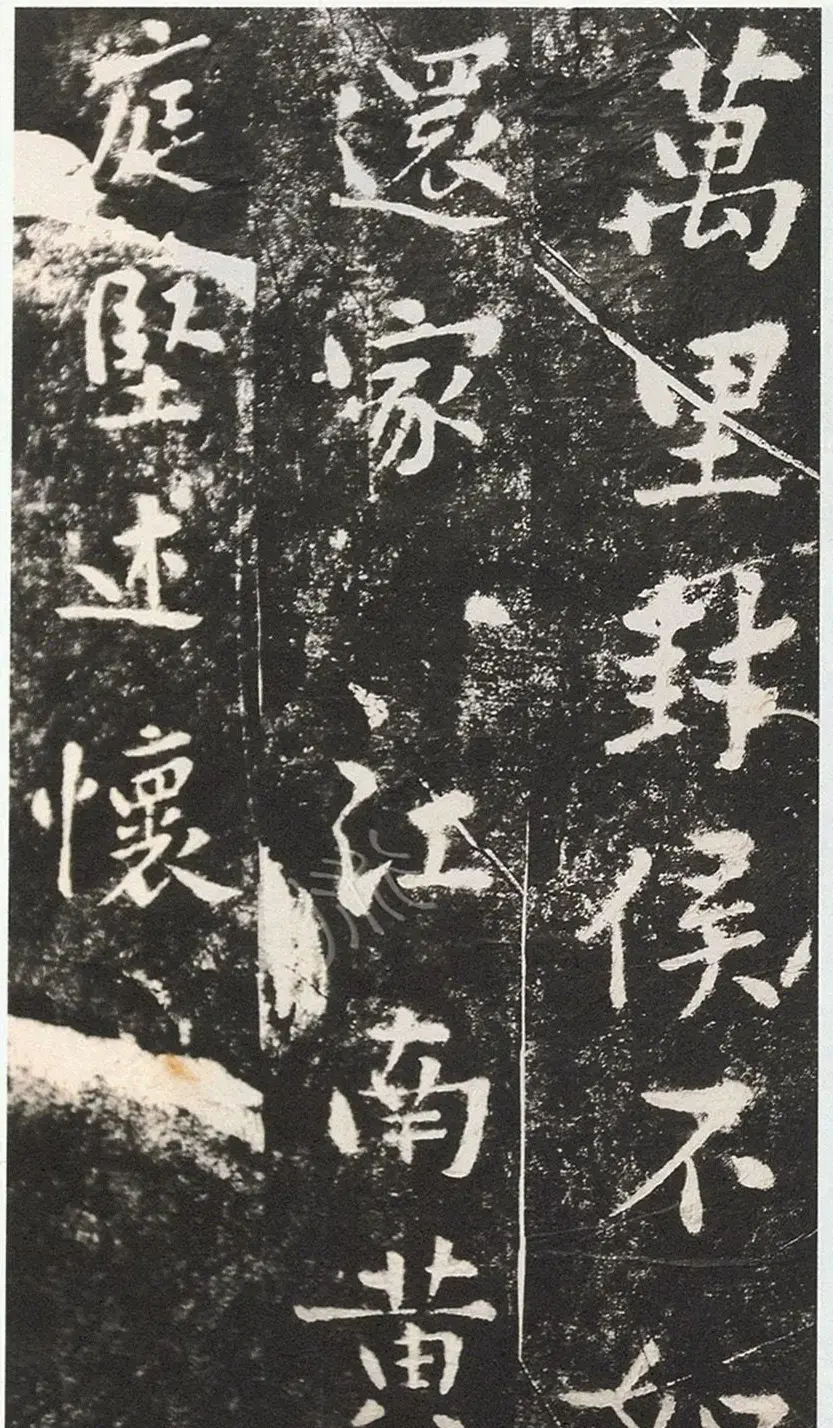 萬里封侯不如
還家　江南黄
庭堅述懷